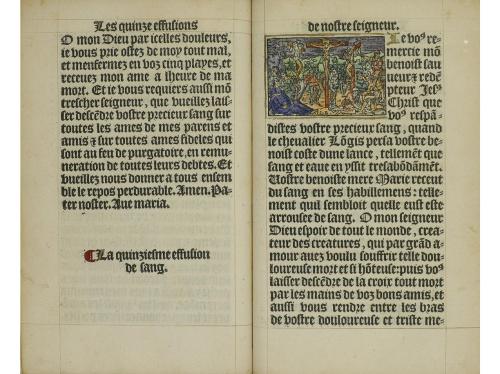 Les quinze effusions
O mon Dieu par icelles douleurs,
ie vous prie ostez de moy tout mal,
et menfermez en voz cinq playes, et
receuez mon ame a lheure de ma
mort. Et ie vous requiers aussi mō
trescher seigneur, que vueillez lais-
ser descēdre vostre precieux sang sur
toutes les ames de mes parens et
amis & sur toutes ames fideles qui
sont au feu de purgatoire, en remu-
neration de toutes leurs debtes. Et
vueillez nous donner a tous ensem
ble le repos perdurable. Amen. Pa-
ter noster. Aue maria.
La quinziesme effusion
de sang.
de nostre seigneur.
Ie voꝰ re-
mercie mō
benoist sau
ueur & redē
pteur Jesꝰ
Christ que
voꝰ respā-
distes vostre precieux sang, quand
le cheualier Lōgis persa vostre be-
noist coste dune lance, tellement que
sang et eaue en yssit tresabōdāmēt.
Vostre benoiste mere Marie receut
du sang en ses habillemens: telle-
ment quil sembloit quelle eust este
arrousee de sang. O mon seigneur
Dieu espoir de tout le monde, crea-
teur des creatures, qui par grād a-
mour auez voulu souffrir telle dou-
loureuse mort et si hōteuse: puis voꝰ
laisser descēdre de la croix tout mort
par les mains de voz bons amis, et
aussi vous rendre entre les bras
de vostre douloureuse et triste me-